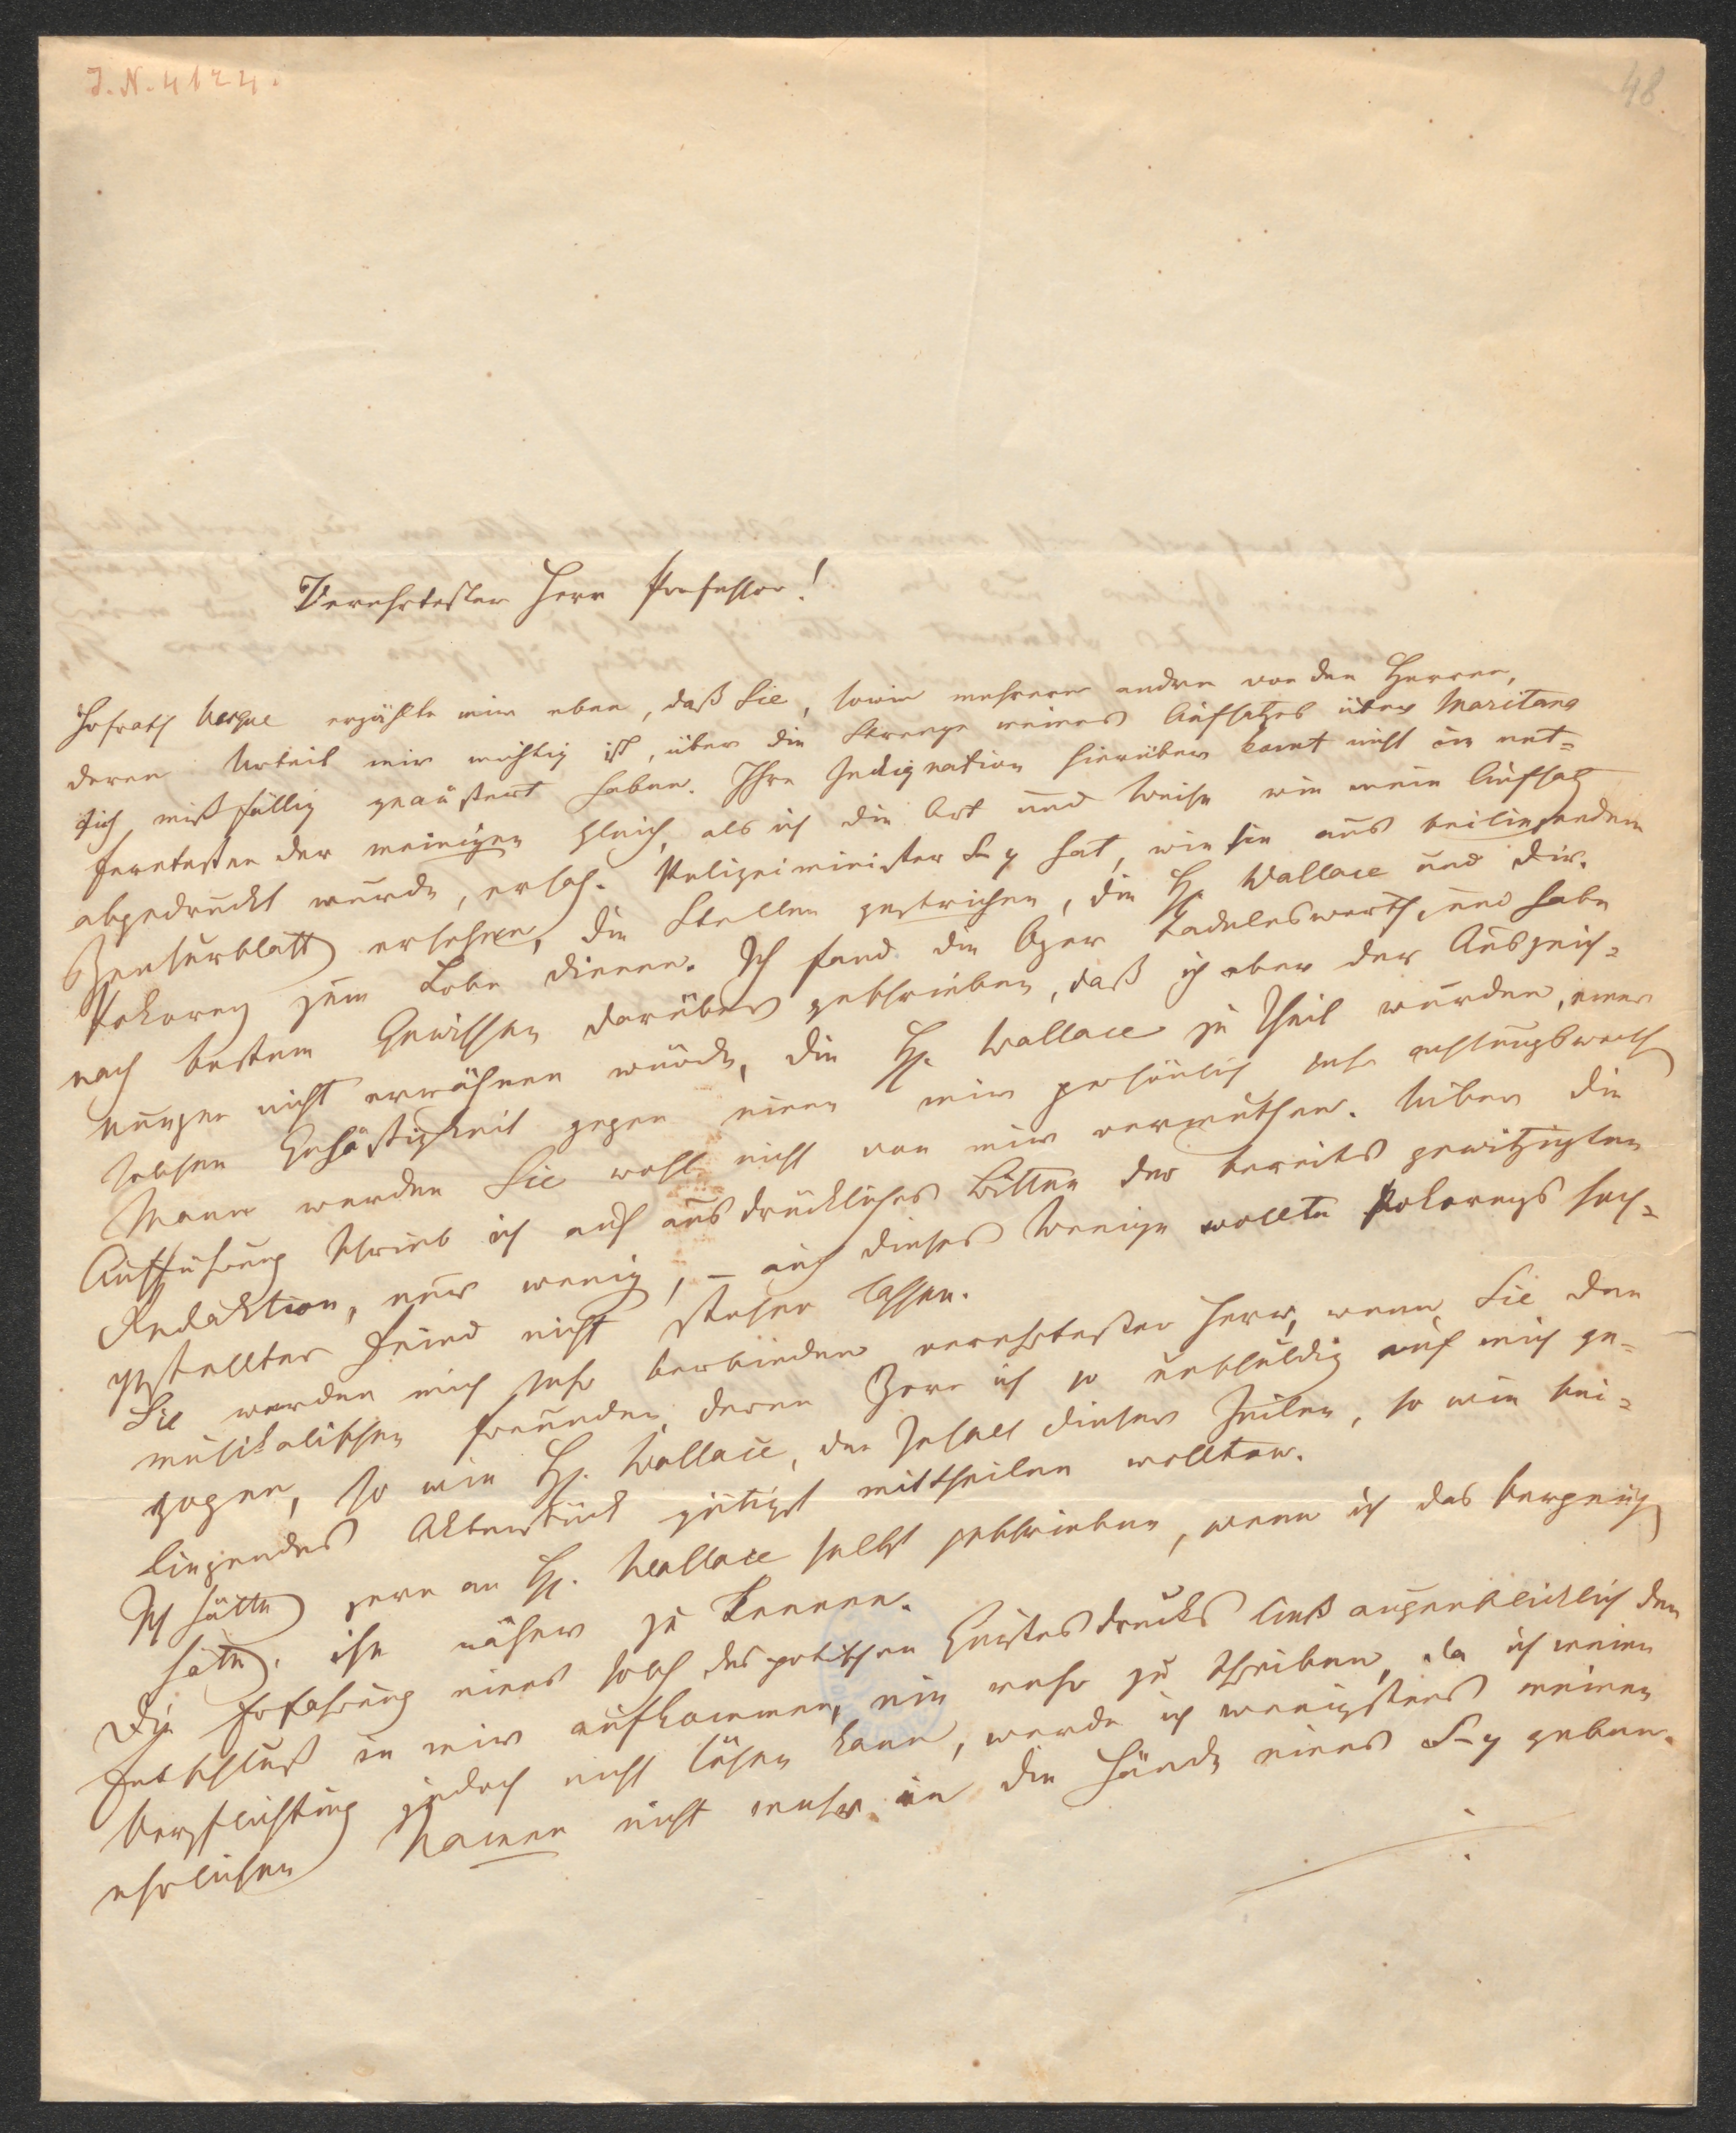 J.N. 4124.
48
Verehrtester Herr Professor!
Hofrath Vesque erzählte mir eben, daß Sie, sowie mehrere andre von den Herren,
deren Urteil mir wichtig ist, über die Strenge meines Aufsatzes über Maritana
sich mißfällig geäußert haben. Ihre Indignation hierüber kommt nicht im ent=
ferntesten der meinigen gleich, als ich die Art und Weise wie mein Aufsatz
abgedruckt wurde, ersah. Polizeiminister S–y hat, wie sie aus beiliegendem
Zensurblatt ersehen, die Stellen gestrichen, die H. Wallace und Dir.
Pokorny zum Lobe dienen. Ich fand die Oper tadelnswerth, und habe
nach bestem Gewissen darüber geschrieben, daß ich aber der Auszeich=
nungen nicht erwähnen würde, die H. Wallace zu Theil wurden, einer
solchen Gehäßigkeit gegen einen mir persönlich sehr achtungswerth
Mann werden Sie wohl nicht von mir vermuthen. Ueber die
Aufführung schrieb ich auf ausdrückliches Bitten der bereits gewitzigten
Redaktion, nur wenig, – auch dieses Wenige wollte Pokornys hoch=
gestellter Feind nicht stehen lassen.
Sie werden mich sehr verbinden verehrtester Herr, wenn Sie den
musikalischen Freunden, deren Zorn ich so unschuldig auf mich ge=
zogen, so wie H. Wallace, den Inhalt dieser Zeilen, so wie bei=
liegendes Aktenstück gütigst mittheilen wollten.
Ich hätte gern an H. Wallace selbst geschrieben, wenn ich das Vergnüg
hätte, ihn näher zu kennen.
Die Erfahrung eines solch despotischen Geistesdrucks ließ augenblicklich den
Entschluß in mir aufkommen, nie mehr zu schreiben, da ich meine
Verpflichtung jedoch nicht lösen kann, werde ich wenigstens meinen
ehrlichen Namen nicht mehr in die Hände eines S–y geben.